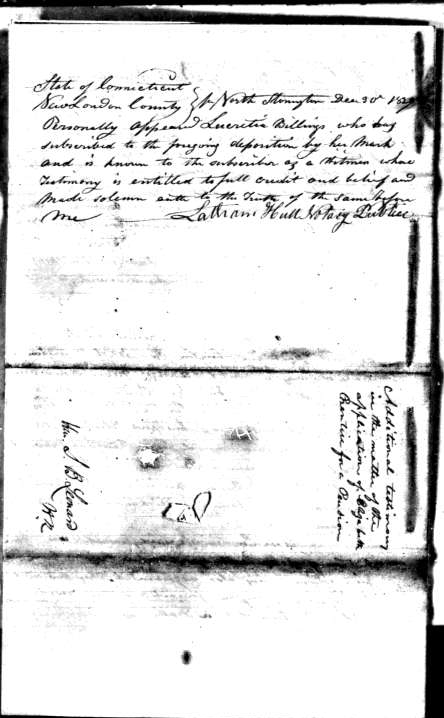 State of Connecticut
New London County } ss North Stonington Dec 30th
Personally appeared Lucretia Billings who has
subscribed to the foregoing deposition by her mark
and is known to the subscriber as a whose
Testimony is entitled to full credit and belief and
made solemn oath to the Truth of the same before
me Latham Hull Notary Public
Additional testimony
in the matter of the
application of Elizabeth
Prentice for a Pension
13